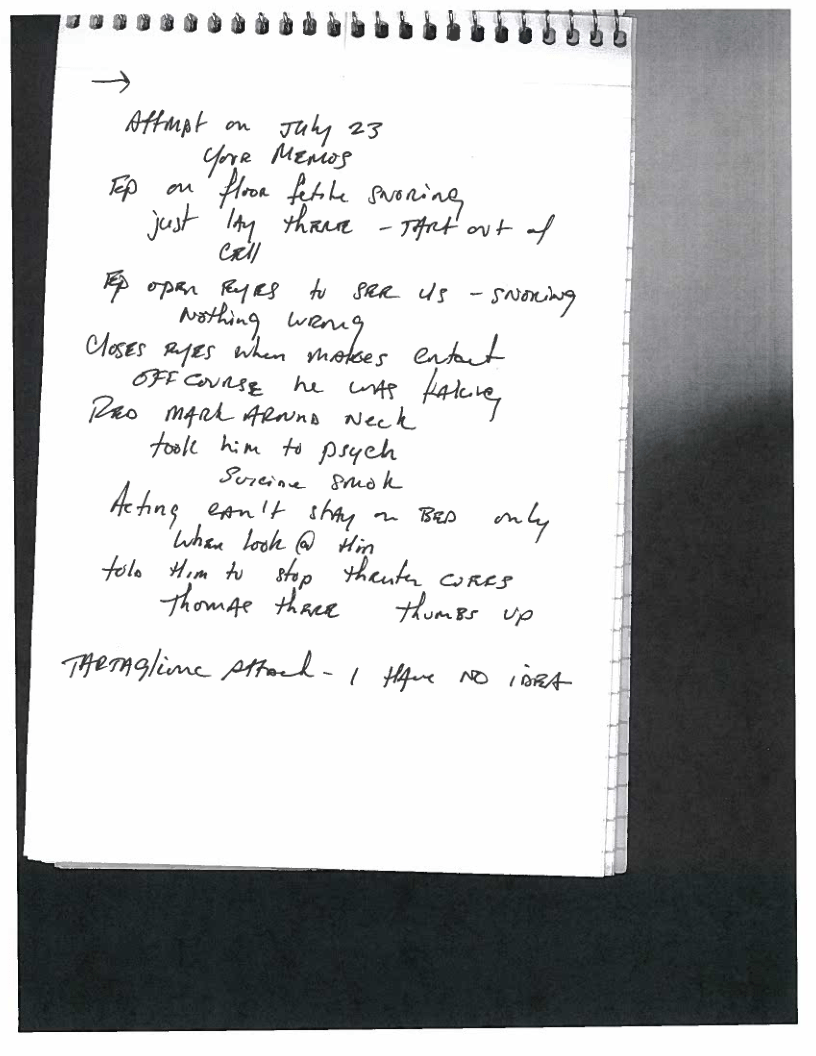 →
Attmpt on July 23
your MEMOS
Ep on floor fetile snoring
just lay there - TArt out of
cell
Ep open Eyes to see us - snoring
Nothing wrong
Closes eyes when makes contact
OFF COURSE he was faking
Red mark Around Neck
took him to psych
Suicide smok
Acting can't stay on BED only
when look @ Him
told Him to stop theater
Thomas there thumbs up
TARTAglione Attack - I HAve NO iDEA